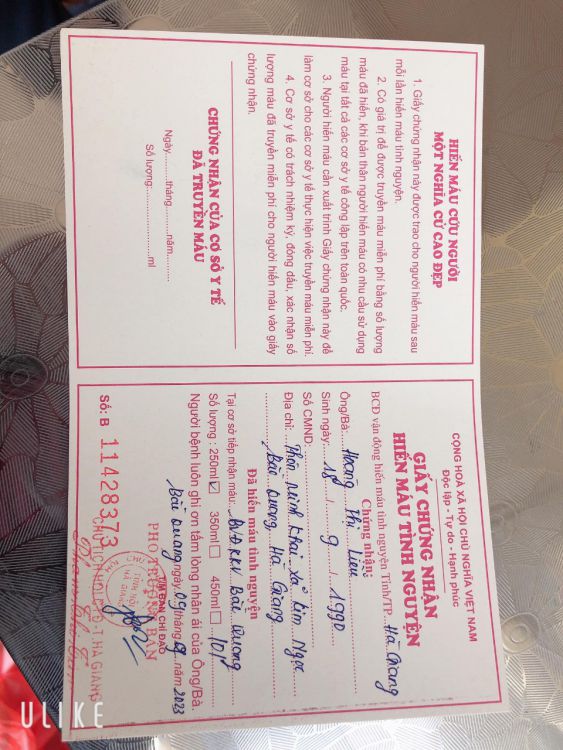 HIẾN MÁU CỨU NGƯỜI
MỘT NGHĨA CỬ CAO ĐẸP
1. Giấy chứng nhận này được trao cho người hiến máu sau
mỗi lần hiến máu tình nguyện.
2. Có giá trị để được truyền máu miễn phí bằng số lượng
máu đã hiến, khi bản thân người hiến máu có nhu cầu sử dụng
máu tại tất cả các cơ sở y tế công lập trên toàn quốc.
3. Người hiến máu cần xuất trình Giấy chứng nhận này để
làm cơ sở cho các cơ sở y tế thực hiện việc truyền máu miễn phí.
4. Cơ sở y tế có trách nhiệm ký, đóng dấu, xác nhận số
lượng máu đã truyền miễn phí cho người hiến máu vào giấy
chứng nhận.
CHỨNG NHẬN CỦA CƠ SỞ Y TẾ
ĐÃ TRUYỀN MÁU
Ngày.........tháng.........năm.........
Số lượng:....................ml
CỘNG HOÀ XÃ HỘI CHỦ NGHĨA VIỆT NAM
Độc lập - Tự do - Hạnh phúc
GIẤY CHỨNG NHẬN
HIẾN MÁU TÌNH NGUYỆN
BCĐ vận động hiến máu tình nguyện Tỉnh/TP Hà Giang
Chứng nhận:
Ông/Bà: Hoàng Thị Liêu
Sinh ngày: 18 / 9 / 1990
Số CMND:
Địa chỉ: Thôn Minh Khai xã Kim Ngọc
Bắc Quang Hà Giang
Đã hiến máu tình nguyện
Tại cơ sở tiếp nhận máu: BVĐKKV Bắc Quang
Số lượng : 250ml ☑ 350ml ☐ 450ml ☐
Người bệnh luôn ghi ơn tấm lòng nhân ái của Ông/Bà.
Bắc Quang ngày 09 tháng 9 năm 2023
TM BAN CHỈ ĐẠO
PHÓ TRƯỞNG BAN
Số: B 11428373
ULIKE